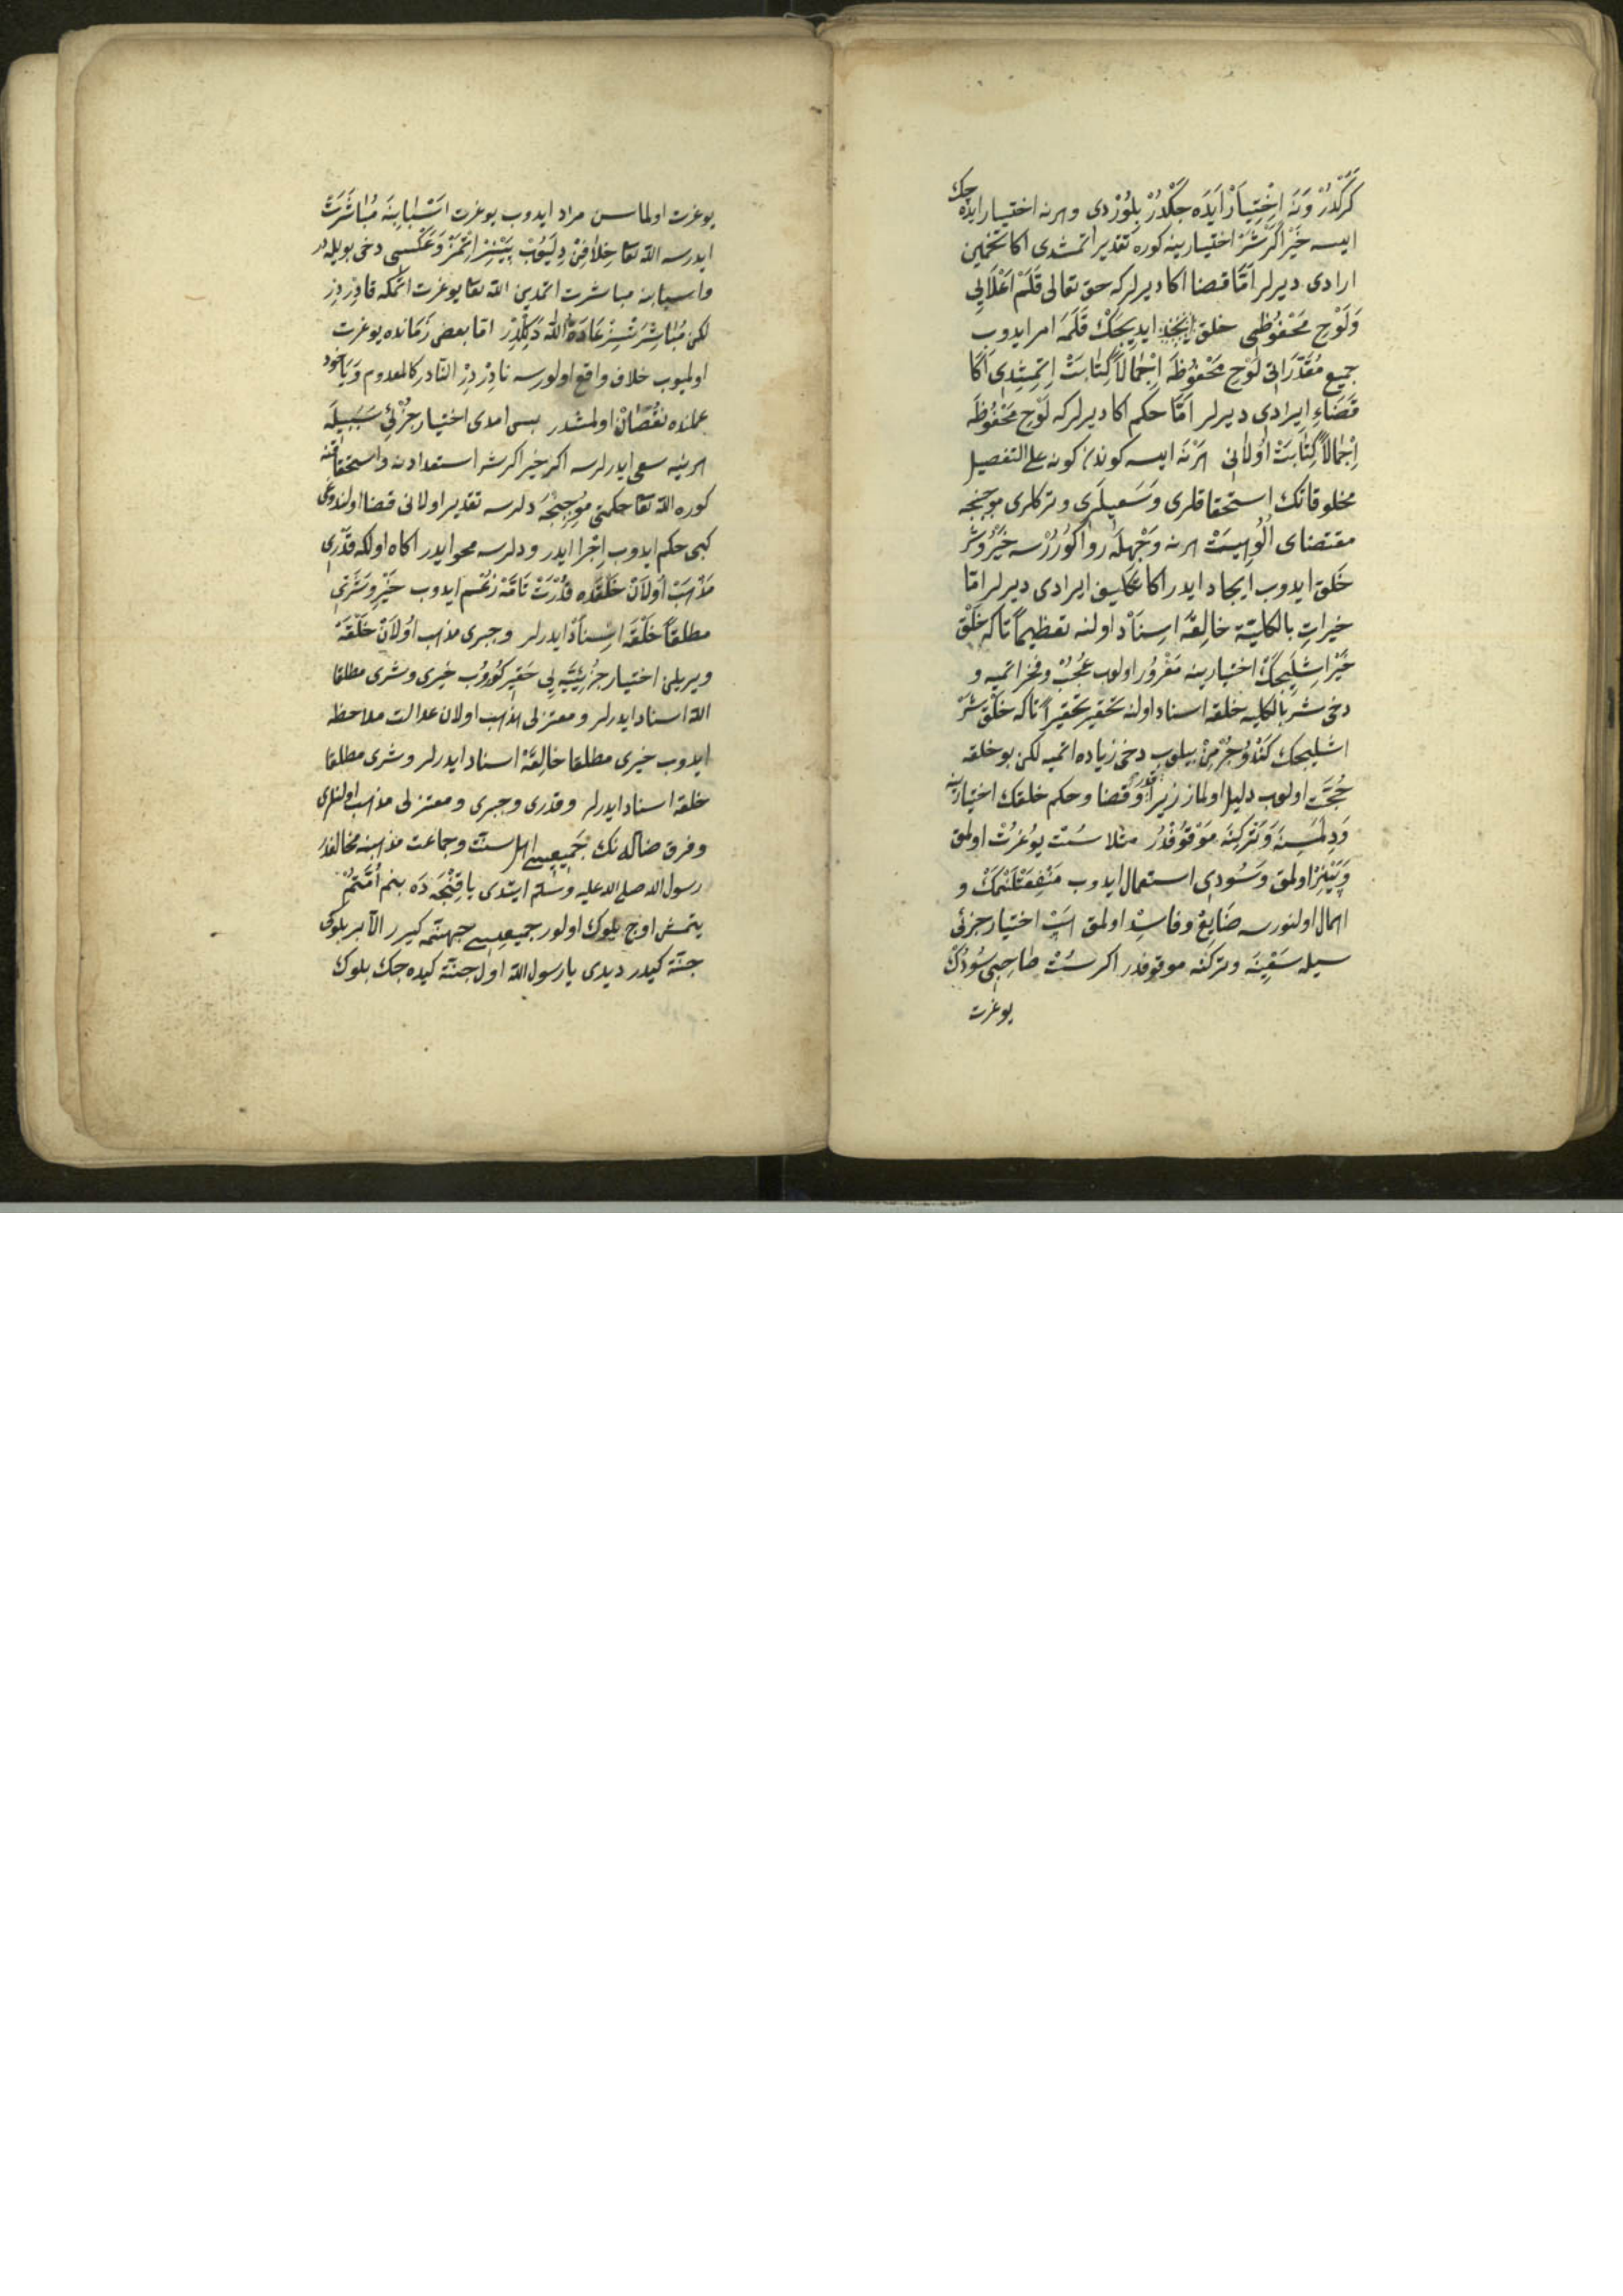 كركدر ونه اختيار ايده جكدر بلوردى وهرنه اختيار ايده جك
ايسه خير اكر شر اختيارينه كوره تقدير اتمشدى اكا تخمين
ارادى ديرلر امّا قضا اكا ديرلركه حق تعالى قلم اعلايى
ولوح محفوظى خلق ايديجك قلمه امر ايدوب
جميع مقدراتى لوح محفوظه اجمالاً كتابت اتمشدى اكا
قضاء ايرادى ديرلر امّا حكم اكا ديرلركه لوح محفوظه
اجمالاً كتابت اولانى هرنه ايسه كوندن كونه على التفصيل
مخلوقاتك استحقاقلرى وسعيلرى وتركلرى موجبنجه
مقتضاى الوهيت هرنه وجهله روا كوررسه خير وشر
خلق ايدوب ايجاد ايدر اكا ايرادى ديرلر امّا
خيرات بالكليّة خالقه اسناد اولنه تعظيماً تاكه خلق
خير اشليجك اختيارينه مغرور اولوب عجب وفخر اتميه و
دخى شر بالكليه خلقه اسناد اولنه تحقير تحقيراً تاكه خلق شر
اشليجك كندو جرمن بيلوب دخى زياده اتميه لكن بو خلقه
حجّت اولوب دليل اولماز زيرا قدر وقضا وحكم خلقك اختيارينه
ودلمسنه وتركينه موقوفدر مثلا سُت يوغرت اولمق
وپينر اولمق وسودى استعمال ايدوب منفعتلنمك و
اهمال اولنورسه ضايع وفاسد اولمق هپ اختيار جزئى
سيله سعينه وتركنه موقوفدر اكر سُت صاحبى سودك
يوغرت
يوغرت اولماسن مراد ايدوب يوغرت اسبابنه مباشرت
ايدرسه الله تعا خلافن دليوب پينير اتمز وعكسى دخى بويله در
واسبابنه مباشرت اتمدين الله تعا يوغرت اتمكه قادردر
لكن مباشرتسز عادة الله دكلدر امّا بعض زمانده يوغرت
اولميوب خلاف واقع اولورسه نادر در النّادر كالمعدوم ويا خود
عملنده نقصان اولمشدر بس امدى اختيار جزئى سببيله
هرنيه سعى ايدرلرسه اكر خير اكر شر استعدادنه واستحقاقنه
كوره الله تعا حكمتى موجبنجه دلرسه تقدير اولانى قضا اولندوغى
كبى حكم ايدوب اجرا ايدر ودلرسه محو ايدر اكاه اولكه قدرى
مذهب اولان خلقده قدرت تامّه زعم ايدوب خير وشرّى
مطلقاً خلقه اسناد ايدرلر وجبرى مذهب اولان خلقه
ويريلن اختيار جزئيّه يى حقير كوروب خيرى وشرى مطلقا
الله اسناد ايدرلر ومعتزلى مذهب اولان عدالت ملاحظه
ايدوب خيرى مطلقا خالقه اسناد ايدرلر وشرى مطلقا
خلقه اسناد ايدرلر وقدرى وجبرى ومعتزلى مذهب اولنلرى
وفرق ضاله نك جميعيسى اهل سنّت وجماعت مذهبنه مخالفدر
رسول الله صلى الله عليه وسلم ايتدى ياقنجه ده بنم امّتم
يتمش اوچ بلوك اولور جميعيسى جهنّمه كيرر الّا بر بلوكى
جنّته كيدر ديدى يا رسول الله اول جنّته كيده جك بلوك